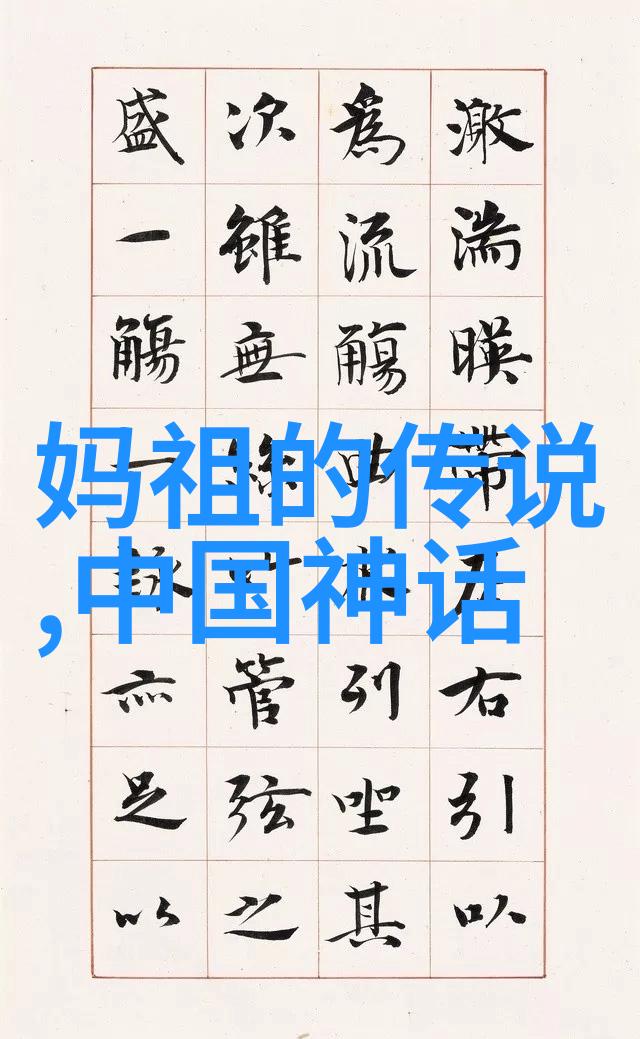 激湍暎帶左右引以
爲流觴曲水列坐其
次雖無絲竹管弦之
盛一觴一詠亦足以
妈祖的传说
,中国神话